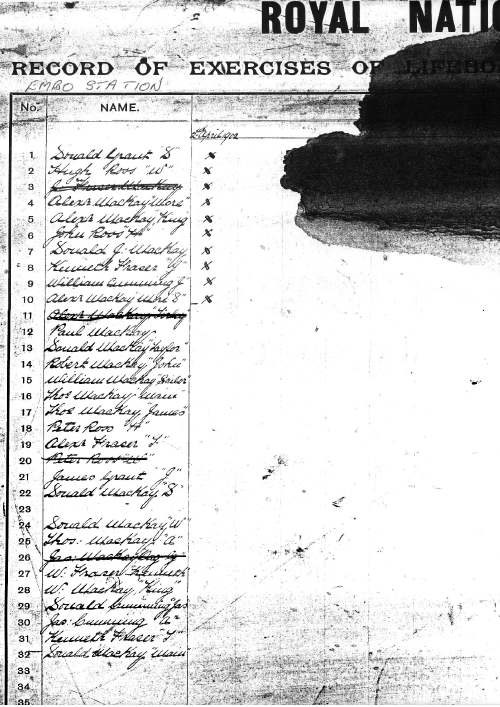 ROYAL NATIO
RECORD OF EXERCISES OF LIFEBO
EMBO STATION
No. NAME.
April 1902
1 Donald Grant "D" x
2 Hugh Ross "W" x
3 J. Fraser Mackay x
4 Alexr Mackay "More" x
5 Alexr Mackay, King x
6 John Ross "H" x
7 Donald J. Mackay x
8 Kenneth Fraser "G" x
9 William Cumming J x
10 Alexr Mackay More "S" x
11 Alexr Mackay
12 Paul Mackay
13 Donald Mackay "Taylor"
14 Robert Mackay "John"
15 William Mackay
16 Thos Mackay "Mann"
17 Thos Mackay James"
18 Peter Ross "H"
19 Alexr Fraser "T"
20 Peter Ross "W"
21 James Grant "J"
22 Donald Mackay "D"
23
24 Donald Mackay "W"
25 Thos: Mackay "A"
26 Jas: Mackay
27 W: Fraser "Kenneth
28 W: Mackay, "King"
29 Donald Cumming "Jas
30 Jas: Cumming
31 Kenneth Fraser "T"
32 Donald Mackay "Mann
33
34
35